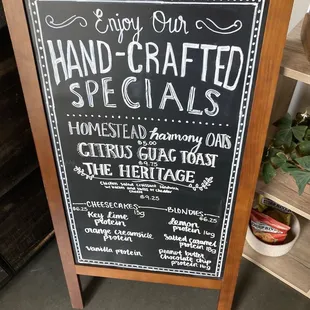 Enjoy Our
HAND-CRAFTED
SPECIALS
HOMESTEAD harmony OATS
$5.00
CITRUS GUAC TOAST
$9.75
THE HERITAGE
Chicken Salad Croissant Sandwich
$9.25
CHEESECAKES
$6.25
13g
Key Lime
protein
orange creamsicle
protein
vanilla protein
BLONDIES
$6.25
Lemon
protein 16g
Salted Caramel
protein 18g
Peanut butter
Chocolate Chip
protein 19g